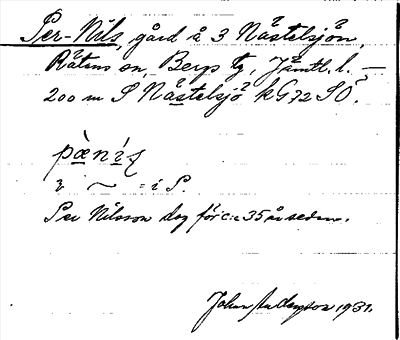 Per-Nils, gård å 3 Nåstelsjön,
Råtans sn, Bergs tg, Jämtl. l. —
200 m S Nåstelsjö kG72 SO.
pæ̀nís
i ~ = i P.
Per Nilsson dog för c:a 35 år sedan.
Johan Anderson 1931.